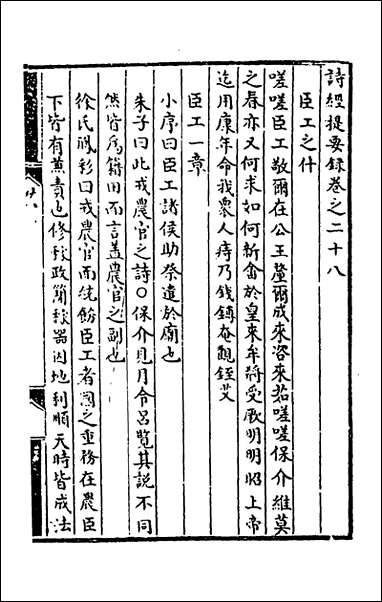 詩經提要録卷之二十八
臣工之什
嗟嗟臣工敬爾在公王釐爾成來咨來茹嗟嗟保介維莫
之春亦又何求如何新畬於皇來牟將受厥明明昭上帝
迄用康年命我衆人庤乃錢鎛奄觀銍艾
臣工一章
小序曰臣工諸侯助祭遣於廟也
朱子曰此戒農官之詩○保介見月令呂覽其說不同
然皆爲籍田而言蓋農官之副也
徐氏鳳彩曰戒農官而統飭臣工者國之重務在農臣
下皆有兼責也修稼政簡稼器因地利順天時皆成法